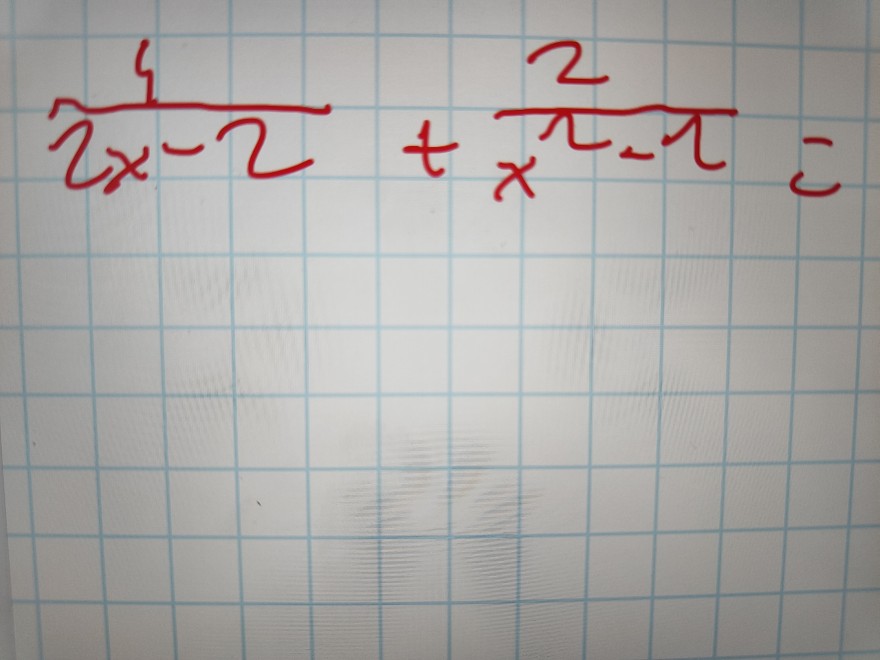 4/(2x-2) + 2/(x²-1) =